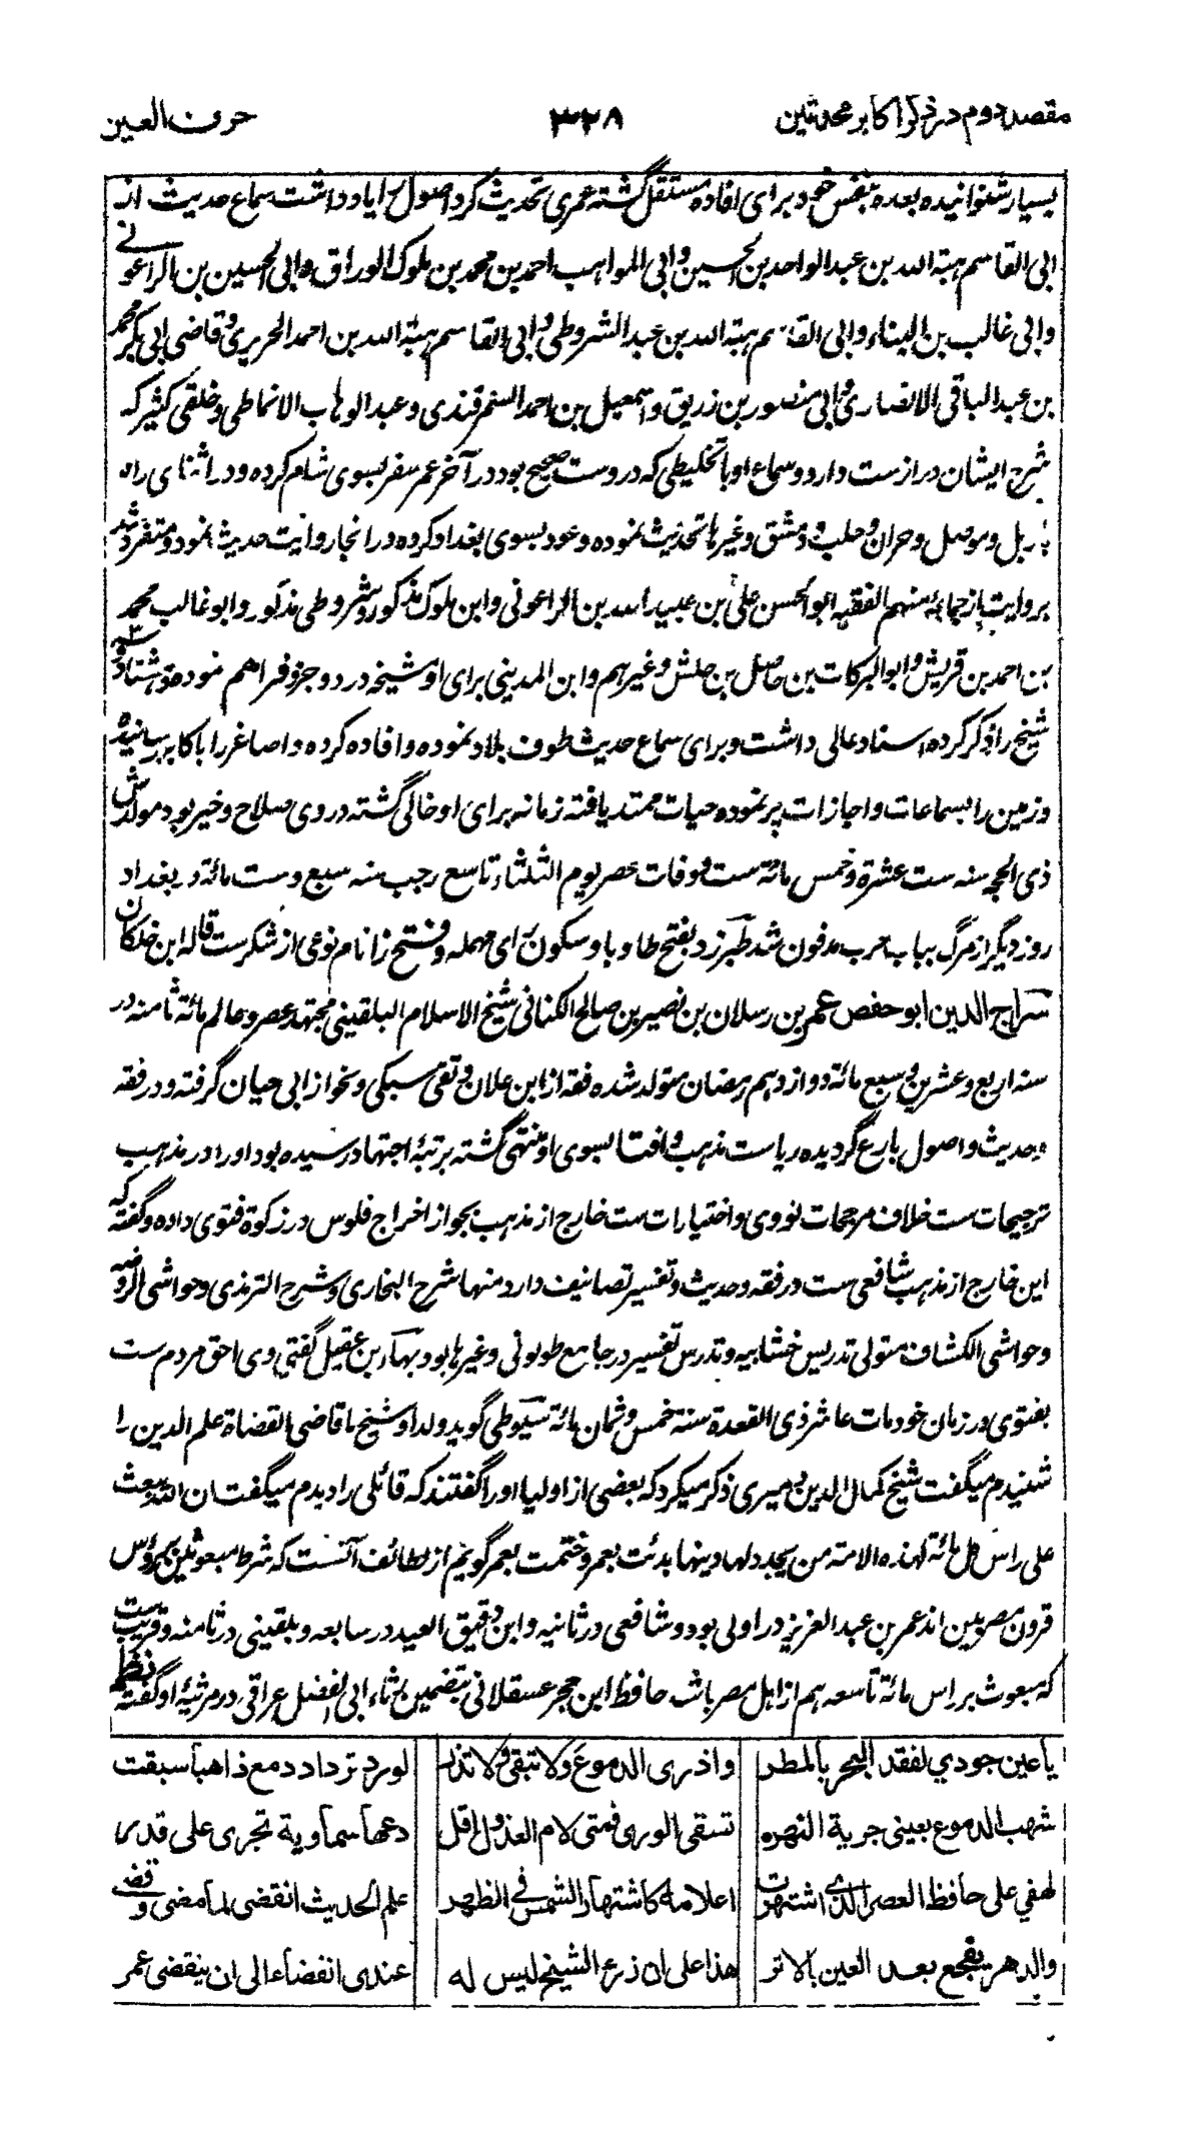 مقصد دوم در ذکر اکابر محدثین
۳۲۸
حرف العین
بسیار شنوانیده بعده بنفس خود برای افاده مستقل گشته عمری تحدیث کرد اصول را یاد داشت سماع حدیث از
ابی القاسم هبة الله بن عبدالواحد بن الحسین و ابی المواهب احمد بن محمد بن ملوک الوراق و ابی الحسین بن الزاغونی
و ابی غالب بن البناء و ابی القاسم هبة الله بن عبدالله الشروطی و ابی القاسم هبة الله بن احمد الحریری و قاضی ابی بکر محمد
بن عبدالباقی الانصاری و ابی منصور بن زریق و اسمعیل بن احمد السمرقندی و عبدالوهاب الانماطی و خلقی کثیر که
شرح ایشان دراز ست دارد و سماع او با تخلیطی که دروست صحیح بود در آخر عمر سفر بسوی شام کرده و در اثنای راه
باربل و موصل و حران و حلب و دمشق و غیرها تحدیث نموده و عود بسوی بغداد کرده در انجا روایت حدیث نمود و متفرد شد
بروایت از جماعه منهم الفقیه ابوالحسن علی بن عبیدالله بن الزاغونی و ابن ملوک مذکور و شروطی مذکور و ابو غالب محمد
بن احمد بن قریش و ابوالبرکات بن حاصل بن حلش و غیرهم و ابن المدینی برای او مشیخه در دو جزو فراهم نموده و هشتاد و سه
شیخ را ذکر کرده اسناد عالی داشت و برای سماع حدیث طوف بلاد نموده و افاده کرده و اصاغر را باکابر رسانیده
و زمین را بسماعات و اجازات پر نموده حیات ممتد یافته زمانه برای او خالی گشته در وی صلاح و خیر بود مولدش
ذی الحجه سنه ست عشرة و خمس مائة ست و وفات عصر یوم الثلثاء تاسع رجب سنه سبع و ست مائة در بغداد
روز دیگر از مرگ بباب حرب مدفون شد طبرزد بفتح طا و با و سکون رای مهمله و فتح زا نام نوعی از شکرست قاله ابن خلکان
سراج الدین ابو حفص عمر بن رسلان بن نصیر بن صالح الکنانی شیخ الاسلام البلقینی مجتهد عصر و عالم مائة ثامنه در
سنه اربع و عشرین و سبع مائة دوازدهم رمضان متولد شده فقه از ابن علان و تقی سبکی و نحو از ابی حیان گرفته و در فقه
و حدیث و اصول بارع گردیده ریاست مذهب و افتا بسوی او منتهی گشته برتبۀ اجتهاد رسیده بود او را در مذهب
ترجیحات ست خلاف مرجحات نووی و اختیارات ست خارج از مذهب بجواز اخراج فلوس در زکوة فتوی داده و گفته که
این خارج از مذهب شافعی ست در فقه و حدیث و تفسیر تصانیف دارد منها شرح البخاری و شرح الترمذی و حواشی الروضه
و حواشی الکشاف متولی تدریس خشابیه و تدرس تفسیر در جامع طولونی و غیرها بود بهاء بن عقیل گفتی وی احق مردم ست
بفتوی در زمان خود مات عاشر ذی القعدة سنة خمس و ثمان مائة سیوطی گوید ولد او شیخ ما قاضی القضاة علم الدین را
شنیدم میگفت شیخ کمال الدین دمیری ذکر میکرد که بعضی از اولیا او را گفتند که قائلی را دیدم میگفت ان الله یبعث
علی راس کل مائة لهذه الامة من یجدد لها دینها بدئت بعمر و ختمت بعمر گویم از لطائف آنست که شرط مبعوثین بر رؤس
قرون مصریین اند عمر بن عبدالعزیز در اولی بود و شافعی در ثانیه و ابن دقیق العید در سابعه و بلقینی در ثامنه و قریب ست
که مبعوث بر راس مائة تاسعه هم از اهل مصر باشد حافظ ابن حجر عسقلانی بتضمین رثاء ابی الفضل عراقی در مرثیۀ او گفته نظم
یا عین جودی لفقد البحر بالمطر واذری الدموع ولا تبقی ولا تذر لورد ترداد دمع ذاهبا سبقت
شهب الدموع بعینی جریة النهر تسقی الوری فمتی لام العذول اقل دعها سماویة تجری علی قدر
لهفی علی حافظ العصر الذی اشتهرت اعلامه کاشتهار الشمس فی الظهر علم الحدیث انقضی لما مضی وقضی
والدهر یفجع بعد العین بالاثر هذا علی ان زرء الشیخ لیس له عندی انقضاء الی ان ینقضی عمر